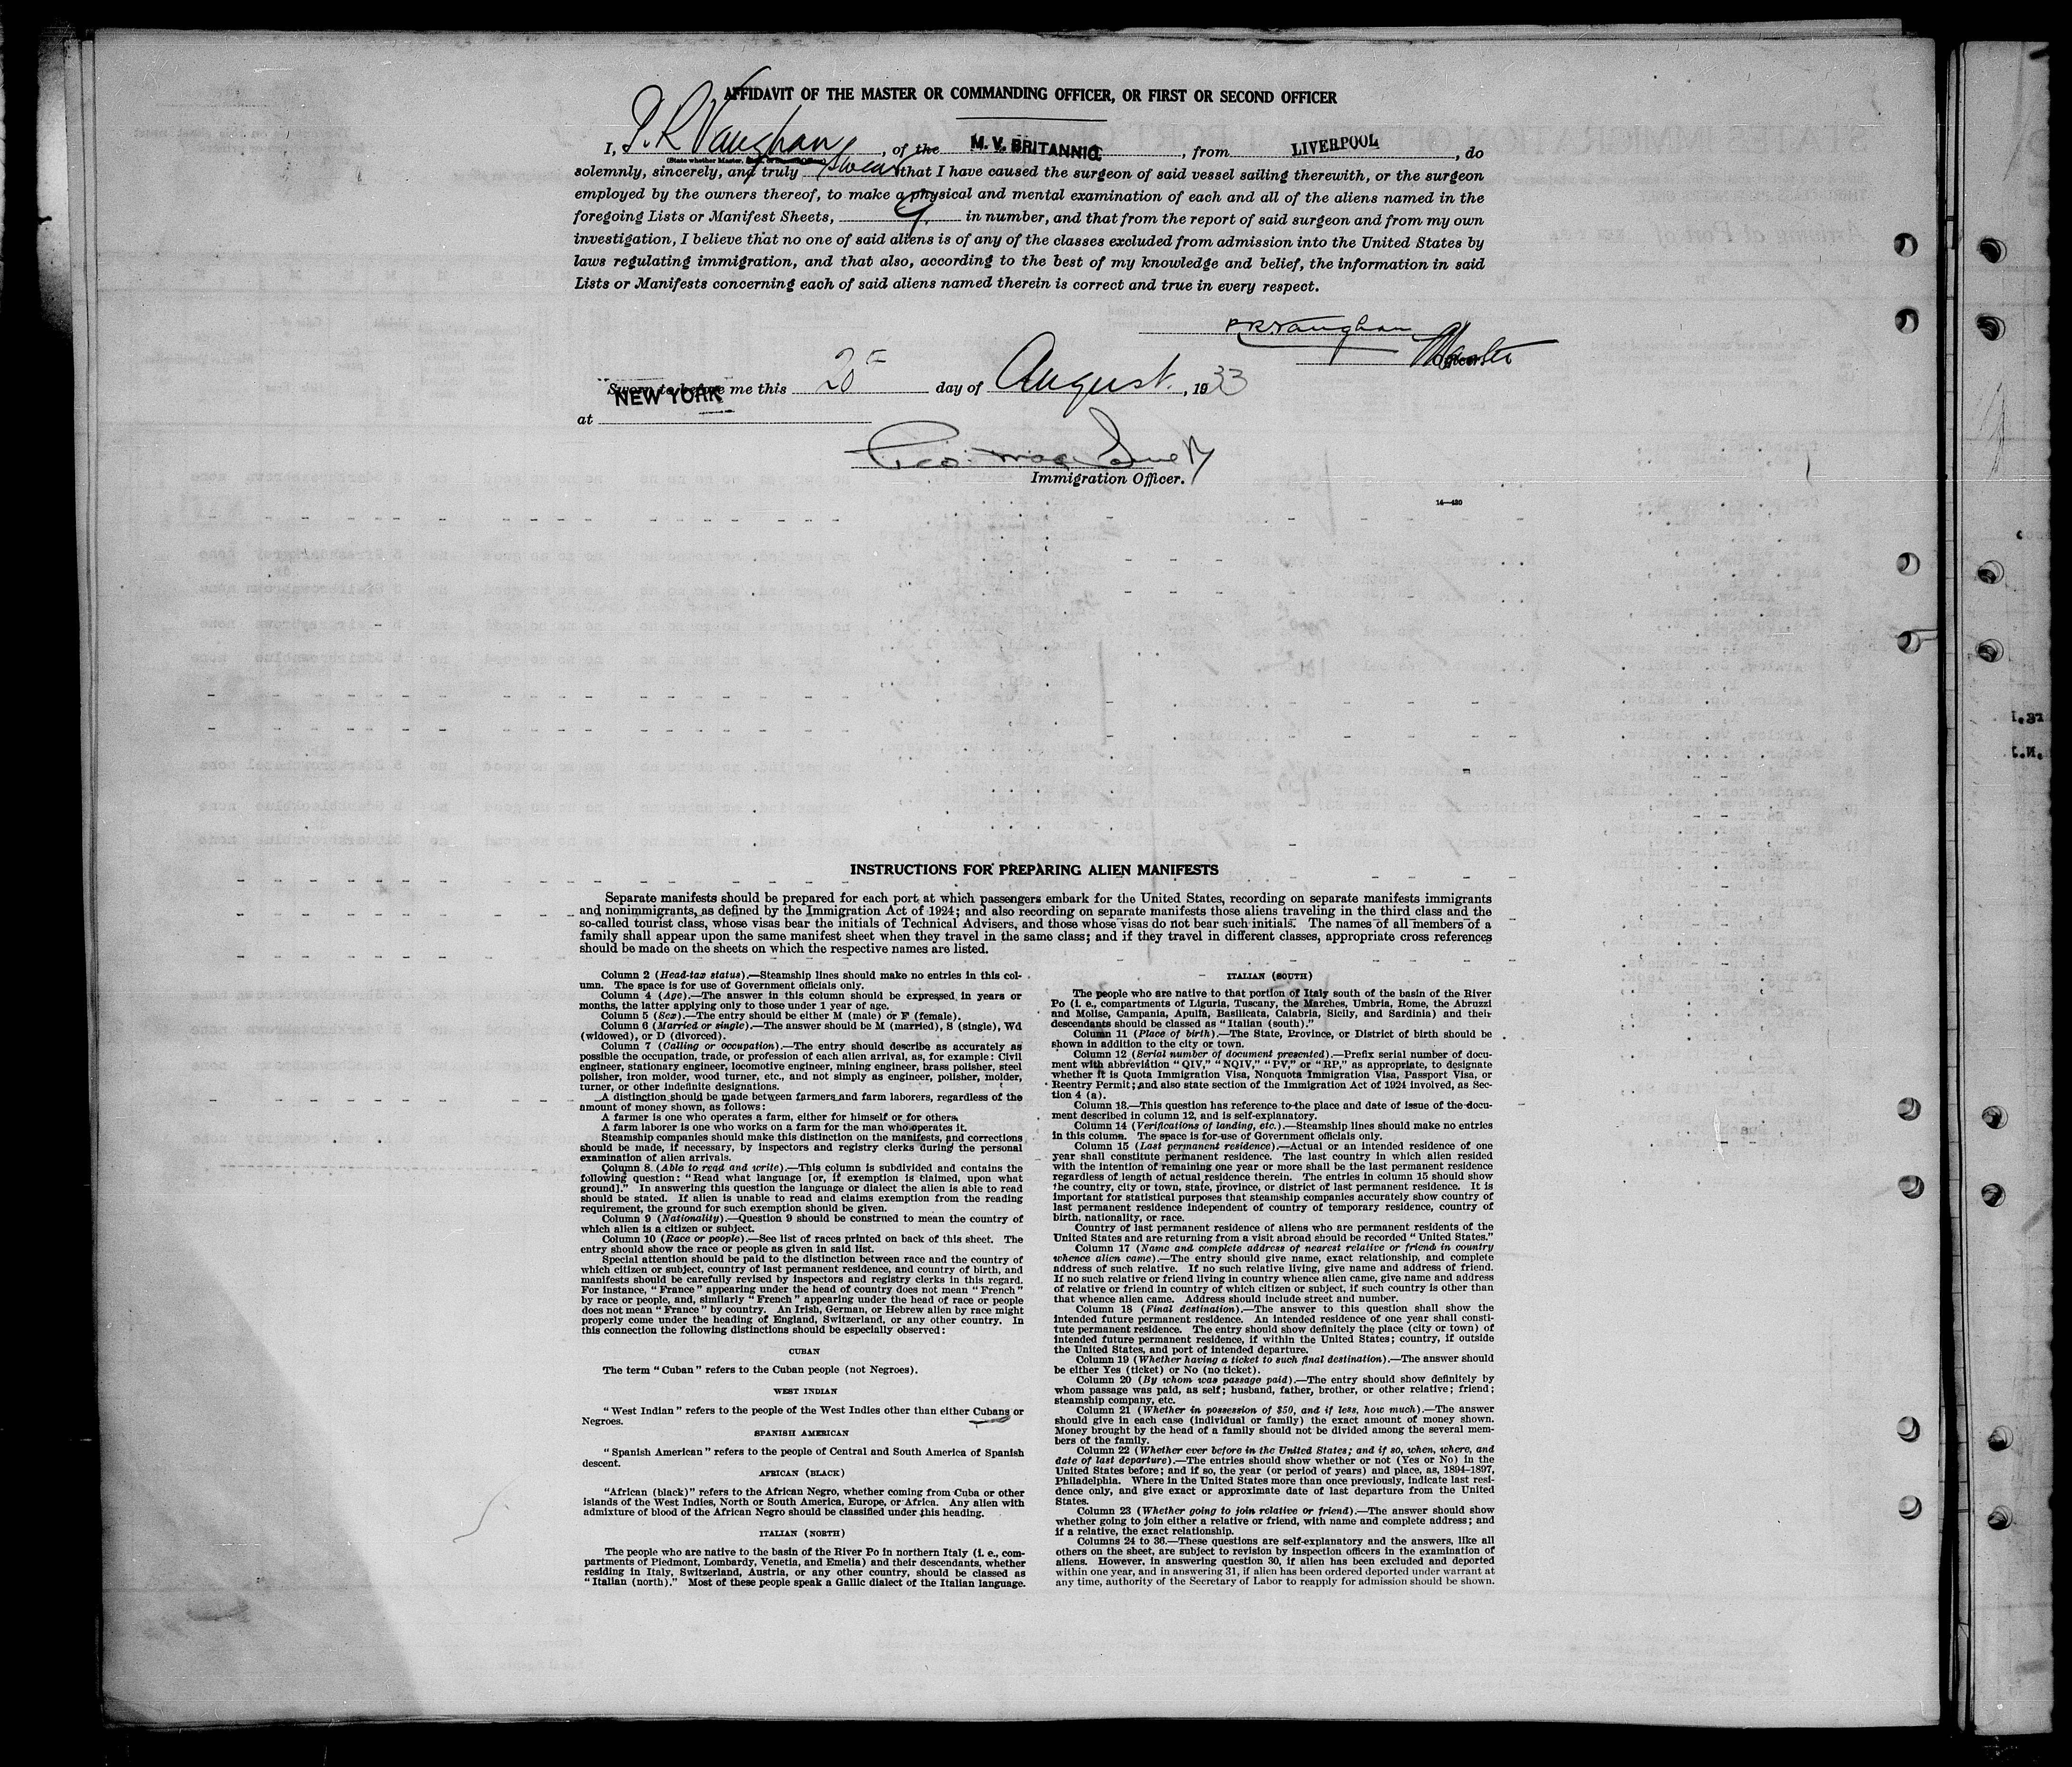 AFFIDAVIT OF THE MASTER OR COMMANDING OFFICER, OR FIRST OR SECOND OFFICER
I, P. R Vaughan, of the M. V. BRITANNIC, from LIVERPOOL, do
(State whether Master, First, or Second Officer)
solemnly, sincerely, and truly swear that I have caused the surgeon of said vessel sailing therewith, or the surgeon
employed by the owners thereof, to make a physical and mental examination of each and all of the aliens named in the
foregoing Lists or Manifest Sheets, 9. in number, and that from the report of said surgeon and from my own
investigation, I believe that no one of said aliens is of any of the classes excluded from admission into the United States by
laws regulating immigration, and that also, according to the best of my knowledge and belief, the information in said
Lists or Manifests concerning each of said aliens named therein is correct and true in every respect.
P R Vaughan
Master
Officer.
Sworn to before me this 20 day of August, 1933
NEW YORK
at
Immigration Officer.
14—420
INSTRUCTIONS FOR PREPARING ALIEN MANIFESTS
Separate manifests should be prepared for each port at which passengers embark for the United States, recording on separate manifests immigrants
and nonimmigrants, as defined by the Immigration Act of 1924; and also recording on separate manifests those aliens traveling in the third class and the
so-called tourist class, whose visas bear the initials of Technical Advisers, and those whose visas do not bear such initials. The names of all members of a
family shall appear upon the same manifest sheet when they travel in the same class; and if they travel in different classes, appropriate cross references
should be made on the sheets on which the respective names are listed.
Column 2 (Head-tax status).—Steamship lines should make no entries in this col-
umn. The space is for use of Government officials only.
Column 4 (Age).—The answer in this column should be expressed in years or
months, the latter applying only to those under 1 year of age.
Column 5 (Sex).—The entry should be either M (male) or F (female).
Column 6 (Married or single).—The answer should be M (married), S (single), Wd
(widowed), or D (divorced).
Column 7 (Calling or occupation).—The entry should describe as accurately as
possible the occupation, trade, or profession of each alien arrival, as, for example: Civil
engineer, stationary engineer, locomotive engineer, mining engineer, brass polisher, steel
polisher, iron molder, wood turner, etc., and not simply as engineer, polisher, molder,
turner, or other indefinite designations.
A distinction should be made between farmers and farm laborers, regardless of the
amount of money shown, as follows:
A farmer is one who operates a farm, either for himself or for others.
A farm laborer is one who works on a farm for the man who operates it.
Steamship companies should make this distinction on the manifests, and corrections
should be made, if necessary, by inspectors and registry clerks during the personal
examination of alien arrivals.
Column 8 (Able to read and write).—This column is subdivided and contains the
following question: "Read what language [or, if exemption is claimed, upon what
ground]." In answering this question the language or dialect the alien is able to read
should be stated. If alien is unable to read and claims exemption from the reading
requirement, the ground for such exemption should be given.
Column 9 (Nationality).—Question 9 should be construed to mean the country of
which alien is a citizen or subject.
Column 10 (Race or people).—See list of races printed on back of this sheet. The
entry should show the race or people as given in said list.
Special attention should be paid to the distinction between race and the country of
which citizen or subject, country of last permanent residence, and country of birth, and
manifests should be carefully revised by inspectors and registry clerks in this regard.
For instance, "France" appearing under the head of country does not mean "French"
by race or people, and, similarly "French" appearing under the head of race or people
does not mean "France" by country. An Irish, German, or Hebrew alien by race might
properly come under the heading of England, Switzerland, or any other country. In
this connection the following distinctions should be especially observed:
CUBAN
The term "Cuban" refers to the Cuban people (not Negroes).
WEST INDIAN
"West Indian" refers to the people of the West Indies other than either Cubans or
Negroes.
SPANISH AMERICAN
"Spanish American" refers to the people of Central and South America of Spanish
descent.
AFRICAN (BLACK)
"African (black)" refers to the African Negro, whether coming from Cuba or other
islands of the West Indies, North or South America, Europe, or Africa. Any alien with
admixture of blood of the African Negro should be classified under this heading.
ITALIAN (NORTH)
The people who are native to the basin of the River Po in northern Italy (i. e., com-
partments of Piedmont, Lombardy, Venetia, and Emelia) and their descendants, whether
residing in Italy, Switzerland, Austria, or any other country, should be classed as
"Italian (north)." Most of these people speak a Gallic dialect of the Italian language.
ITALIAN (SOUTH)
The people who are native to that portion of Italy south of the basin of the River
Po (i. e., compartments of Liguria, Tuscany, the Marches, Umbria, Rome, the Abruzzi
and Molise, Campania, Apulia, Basilicata, Calabria, Sicily, and Sardinia) and their
descendants should be classed as "Italian (south)."
Column 11 (Place of birth).—The State, Province, or District of birth should be
shown in addition to the city or town.
Column 12 (Serial number of document presented).—Prefix serial number of docu-
ment with abbreviation "QIV," "NQIV," "PV," or "RP," as appropriate, to designate
whether it is Quota Immigration Visa, Nonquota Immigration Visa, Passport Visa, or
Reentry Permit; and also state section of the Immigration Act of 1924 involved, as Sec-
tion 4 (a).
Column 13.—This question has reference to the place and date of issue of the docu-
ment described in column 12, and is self-explanatory.
Column 14 (Verifications of landing, etc.).—Steamship lines should make no entries
in this column. The space is for use of Government officials only.
Column 15 (Last permanent residence).—Actual or an intended residence of one
year shall constitute permanent residence. The last country in which alien resided
with the intention of remaining one year or more shall be the last permanent residence
regardless of length of actual residence therein. The entries in column 15 should show
the country, city or town, state, province, or district of last permanent residence. It is
important for statistical purposes that steamship companies accurately show country of
last permanent residence independent of country of temporary residence, country of
birth, nationality, or race.
Country of last permanent residence of aliens who are permanent residents of the
United States and are returning from a visit abroad should be recorded "United States."
Column 17 (Name and complete address of nearest relative or friend in country
whence alien came).—The entry should give name, exact relationship, and complete
address of such relative. If no such relative living, give name and address of friend.
If no such relative or friend living in country whence alien came, give name and address
of relative or friend in country of which citizen or subject, if such country is other than
that whence alien came. Address should include street and number.
Column 18 (Final destination).—The answer to this question shall show the
intended future permanent residence. An intended residence of one year shall consti-
tute permanent residence. The entry should show definitely the place (city or town) of
intended future permanent residence, if within the United States; country, if outside
the United States, and port of intended departure.
Column 19 (Whether having a ticket to such final destination).—The answer should
be either Yes (ticket) or No (no ticket).
Column 20 (By whom was passage paid).—The entry should show definitely by
whom passage was paid, as self; husband, father, brother, or other relative; friend;
steamship company, etc.
Column 21 (Whether in possession of $50, and if less, how much).—The answer
should give in each case (individual or family) the exact amount of money shown.
Money brought by the head of a family should not be divided among the several mem-
bers of the family.
Column 22 (Whether ever before in the United States; and if so, when, where, and
date of last departure).—The entries should show whether or not (Yes or No) in the
United States before; and if so, the year (or period of years) and place, as, 1894–1897,
Philadelphia. Where in the United States more than once previously, indicate last resi-
dence only, and give exact or approximate date of last departure from the United
States.
Column 23 (Whether going to join relative or friend).—The answer should show
whether going to join either a relative or friend, with name and complete address; and
if a relative, the exact relationship.
Columns 24 to 36.—These questions are self-explanatory and the answers, like all
others on the sheet, are subject to revision by inspection officers in the examination of
aliens. However, in answering question 30, if alien has been excluded and deported
within one year, and in answering 31, if alien has been ordered deported under warrant at
any time, authority of the Secretary of Labor to reapply for admission should be shown.